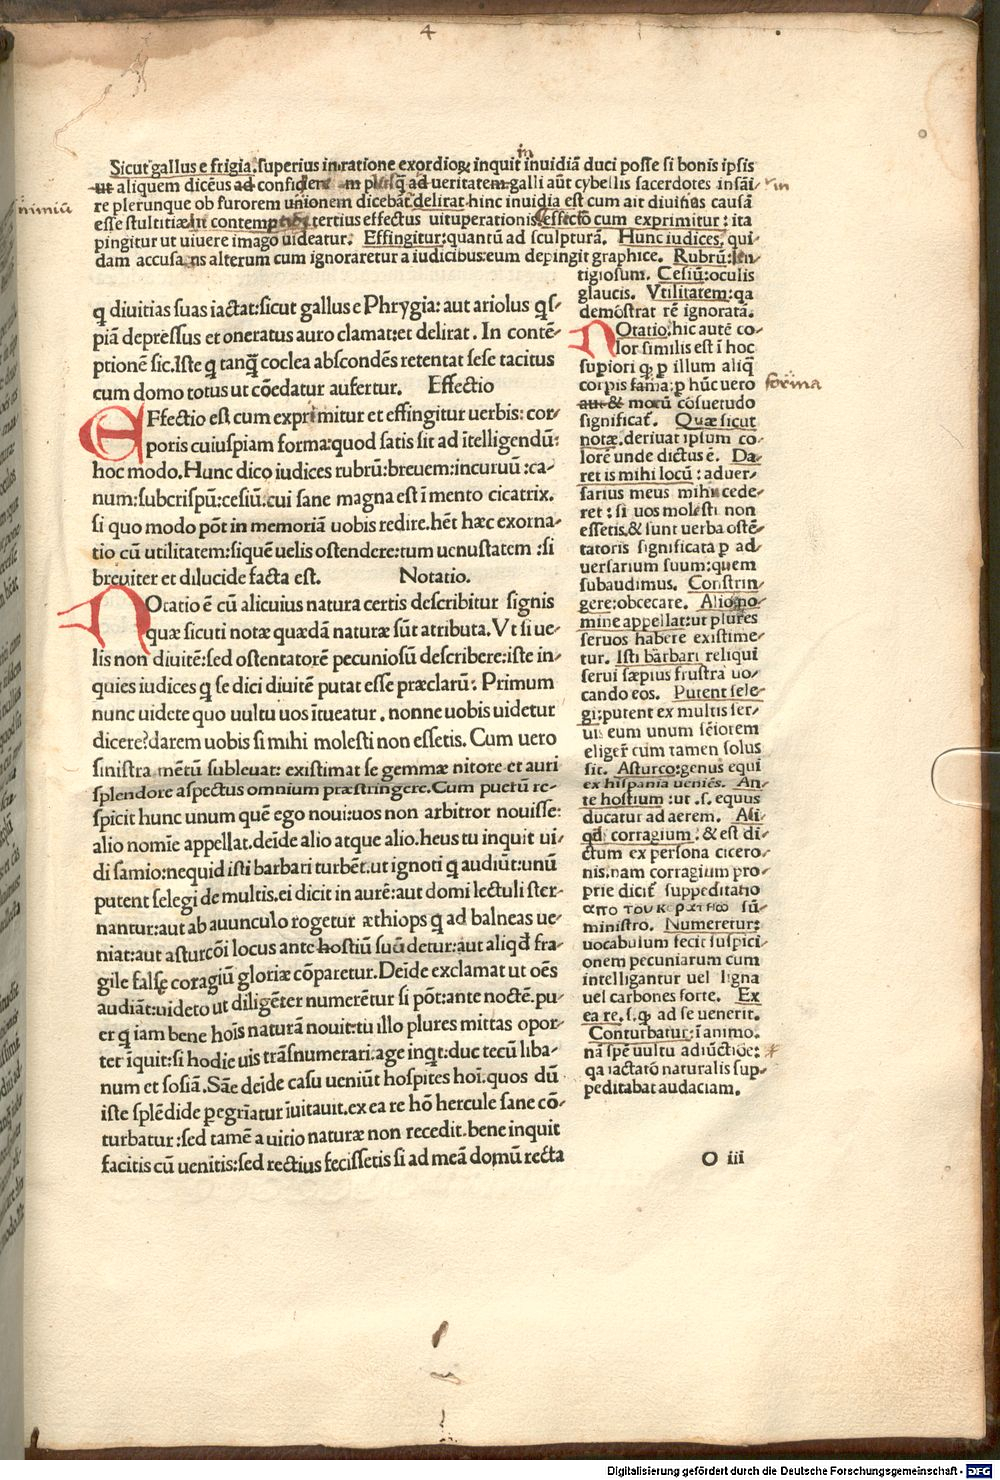 4
Sicut gallus e frigia. superius in ratione exordioꝝ inquit inuidiā duci posse si bonis ipsis
ut aliquem dicēus ad ueritatem galli aūt cybellis sacerdotes insāi-
re plerunque ob furorem unionem dicebāt delirat hinc inuidia est cum ait diuitias causā
esse stultitiæ In tertius effectus uituperationis effectō cum exprimitur: ita
pingitur ut uiuere imago uideatur. Effingitur: quantū ad sculpturā. Hunc iudices. qui-
dam accusans alterum cum ignoraretur a iudicibus: eum depingit graphice. Rubrū: len-
tigiosum. Cesiū: oculis
glaucis. Vtilitatem: qa
demōstrat rē ignoratā.
nimiū
in
in
q diuitias suas iactat: sicut gallus e Phrygia: aut ariolus qs-
piā depressus et oneratus auro clamat: et delirat. In contē-
ptionē sic. Iste q tanq̄ coclea abscondēs retentat sese tacitus
cum domo totus ut cōedatur aufertur. Effectio
EFfectio est cum exprimitur et effingitur uerbis: cor-
poris cuiuspiam forma: quod satis sit ad ītelligendū:
hoc modo. Hunc dico iudices rubrū: breuem: incuruū: ca-
num: subcrispū: cesiū. cui sane magna est ī mento cicatrix.
si quo modo pōt in memoriā uobis redire. hēt hæc exorna-
tio cū utilitatem: siquē uelis ostendere: tum uenustatem: si
breuiter et dilucide facta est. Notatio.
NOtatio ē cū alicuius natura certis describitur signis
quæ sicuti notæ quædā naturæ sūt atributa. Vt si ue-
lis non diuitē: sed ostentatorē pecuniosū describere: iste in-
quies iudices q se dici diuitē putat esse præclarū. Primum
nunc uidete quo uultu uos ītueatur. nonne uobis uidetur
dicere? darem uobis si mihi molesti non essetis. Cum uero
sinistra mētū subleuat: existimat se gemmæ nitore et auri
splendore aspectus omnium præstringere. Cum puerū re-
spicit hunc unum quē ego noui: uos non arbitror nouisse:
alio nomīe appellat. deīde alio atque alio. heus tu inquit ui-
di samio: nequid isti barbari turbēt. ut ignoti q audiūt: unū
putent selegi de multis. ei dicit in aurē: aut domi lectuli ster-
nantur: aut ab auunculo rogetur æthiops q ad balneas ue-
niat: aut asturcōi locus ante hostiū suū detur: aut aliqd fra-
gile falsę coragiū gloriæ cōparetur. Deīde exclamat ut oēs
audiāt: uideto ut diligēter numerētur si pōt: ante noctē. pu-
er q iam bene hoīs naturā nouit: tu illo plures mittas opor-
ter īquit: si hodie uis trāsnumerari. age inqt: duc tecū liba-
num et sosiā. Sāe deīde casu ueniūt hospites hoī. quos dū
iste splēdide pegrīatur īuitauit. ex ea re hō hercule sane cō-
turbatur: sed tamē a uitio naturæ non recedit. bene inquit
facitis cū uenitis: sed rectius fecissetis si ad meā domū recta
NOtatio. hic autē co-
lor similis est ī hoc
supiori q p illum aliq
corpis fama: p hūc uero
aut & morū cōsuetudo
significat. Quæ sicut
notæ. deriuat ipsum co-
lorē unde dictus ē. Da-
ret is mihi locū: aduer-
sarius meus mihi cede-
ret: si uos molesti non
essetis. & sunt uerba ostē-
tatoris significata p ad-
uersarium suum: quem
subaudimus. Constrin-
gere: obcecare. Alio no-
mine appellat: ut plures
seruos habere existime-
tur. Isti barbari reliqui
serui sæpius frustra uo-
cando eos. Putent sele-
gi: putent ex multis ser-
uis eum unum sēiorem
eliger cum tamen solus
sit. Asturco: genus equi
ex hispania ueniēs. An-
te hostium: ut .s. equus
ducatur ad aerem. Ali-
qd corragium. & est di-
ctum ex persona cicero-
nis. nam corragium pro-
prie dicit suppeditatio
sū-
ministro. Numeretur:
uocabulum fecit suspici-
onem pecuniarum cum
intelligantur uel ligna
uel carbones forte. Ex
ea re. s. q ad se uenerit.
Conturbatur: ī animo.
nā spē uultu adiūctiōe:
qa iactatō naturalis sup-
peditabat audaciam.
forma
O iii
Digitalisierung gefördert durch die Deutsche Forschungsgemeinschaft - DFG